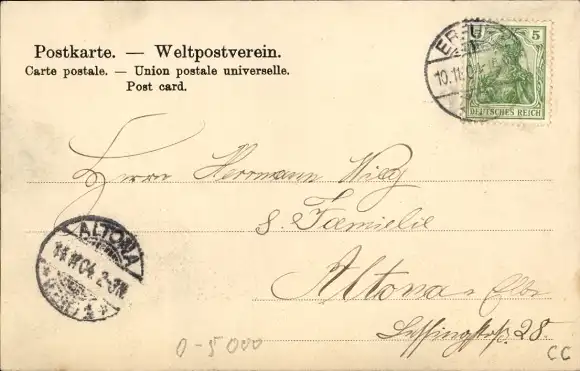 Postkarte. — Weltpostverein.
Carte postale. — Union postale universelle.
Post card.
5
DEUTSCHES REICH
10.11.04
Herrn Herrmann
s. Fæmielie
Altona a. Elbe
Lessingstrß. 28.
ALTONA
11.11.04. 2-3N.
0-5000
CC